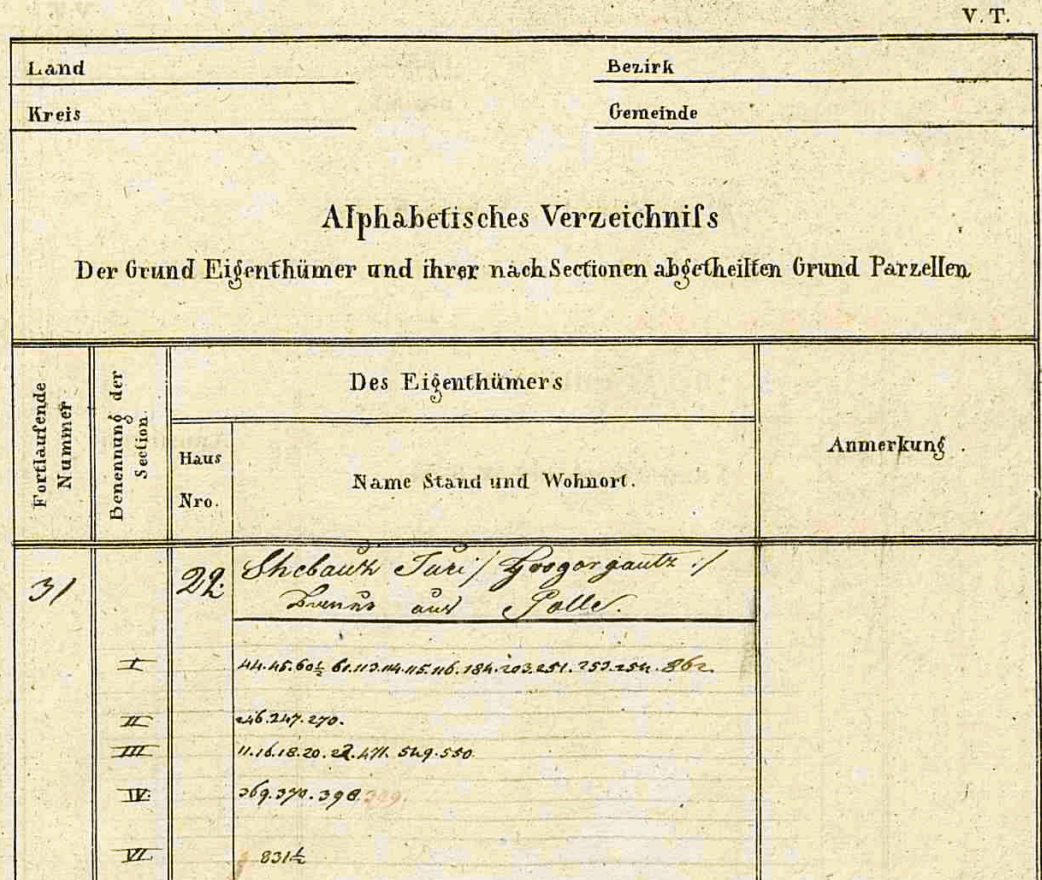 V. T.
Land
Bezirk
Kreis
Gemeinde
Alphabetisches Verzeichniſs
Der Grund Eigenthümer und ihrer nach Sectionen abgetheilten Grund Parzellen
Fortlaufende Nummer
Benennung der Section.
Des Eigenthümers
Haus Nro.
Name Stand und Wohnort.
Anmerkung.
31 22. Shebaux Juri /: Gregorgautz :/
aus Polle.
I 44. 45. 60½ 61. 113. 114. 115. 116. 184. 203. 251. 253. 254. 862.
II 246. 247. 270.
III 11. 16. 18. 20. 22. 471. 549. 550.
IV. 369. 370. 398. 399.
VI. 831½